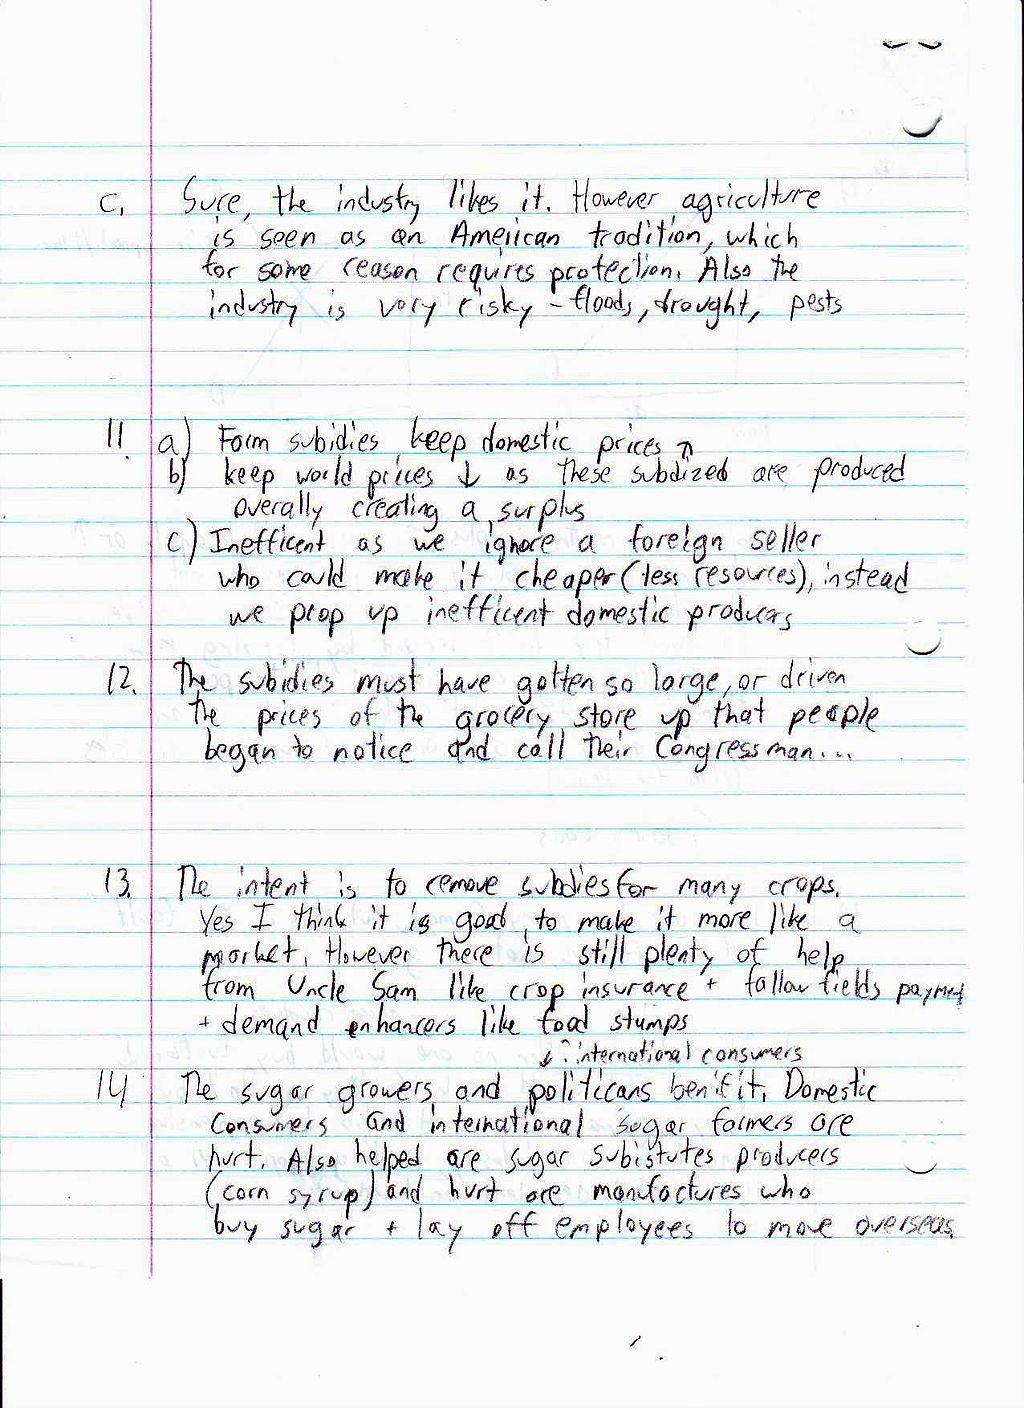 c. Sure, the industry likes it. However agriculture
is seen as an American tradition, which
for some reason requires protection. Also the
industry is very risky - floods, drought, pests
11. a) Farm subidies keep domestic prices ↑
b) keep world prices ↓ as these subdized are produced
overally creating a surplus
c) Inefficent as we ignore a foreign seller
who could make it cheaper (less resources), instead
we prop up inefficent domestic producers
12. The subidies must have gotten so large, or driven
the prices of the grocery store up that people
began to notice and call their Congressman...
13. The intent is to remove subdies for many crops.
Yes I think it is good, to make it more like a
market. However there is still plenty of help
from Uncle Sam like crop insurance + fallow fields payment
+ demand enhancers like food stumps
↓ ? international consumers
14 The sugar growers and politicans benifit. Domestic
Consumers and international sugar farmers are
hurt. Also helped are sugar subistutes producers
(corn syrup) and hurt are manufactures who
buy sugar + lay off employees to move overseas.